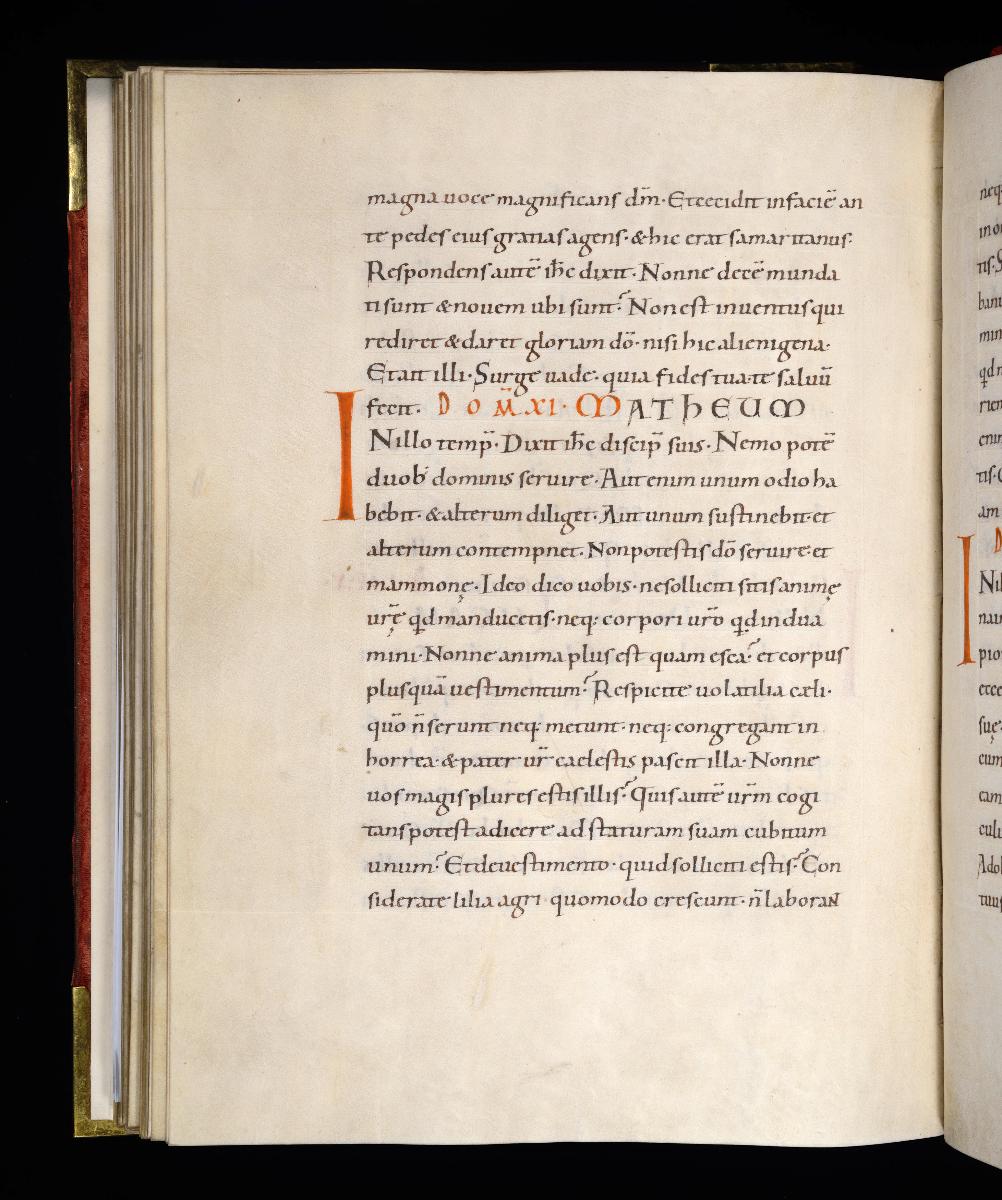 magna uoce magnificans dm̄· Et cecidit in faciē an
te pedes eius gratias agens· & hic erat samaritanus·
Respondens autē ih̄c dixit· Nonne decē munda
ti sunt & nouem ubi sunt? Non est inuentus qui
rediret & daret gloriam dō· nisi hic alienigena·
Et ait illi· Surge uade· quia fides tua te saluū
fecit· DOM̄ XI· MATHEUM
INillo temp̄· Dixit ih̄c discip̄ suis· Nemo potē
duob; dominis seruire· Aut enim unum odio ha
bebit· & alterum diliget· Aut unum sustinebit et
alterum contempnet· Non potestis dō seruire· et
mammonę· Ideo dico uobis· ne solliciti sitis animę
ur̄ę qd manducetis· neq; corpori ur̄o qd indua
mini· Nonne anima plus est quam esca? et corpus
plus quā uestimentum? Respicite uolatilia cæli·
quō n̄ serunt neq; metunt· neq; congregant in
horrea· & pater ur̄ caelestis pascit illa· Nonne
uos magis plures estis illis? Quis autē ur̄m cogi
tans potest adicere ad staturam suam cubitum
unum? Et de uestimento· quid solliciti estis? Con
siderate lilia agri quomodo crescunt· n̄ laborant